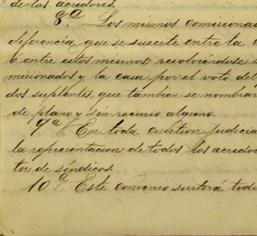 de los acredores.
8.ª Los mismos comisionad
diferencia que se suscite entre la
ó entre estos mismos resolviendose
misionados y la casa por el voto del
dos suplentes que tambien se nombrar
de plano y sin recurso alguno.
9ª En toda cuestion judicial
la representacion de todos los acredor
ter de síndicos.
10ª Este convenio surtirá todo